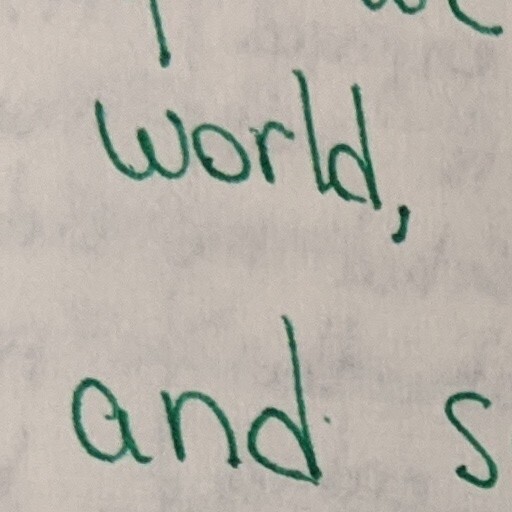 world,
and s